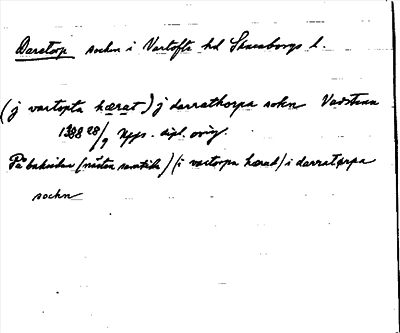 Daretorp socken i Vartofte hd Skaraborgs l.
(j vartopta hærat) j darrathorpa sokn Vadstena
1388 28/9 Upps. dipl. orig.
På baksidan (nästan samtida) (i vartopa hærad) i darratorpa
sochn